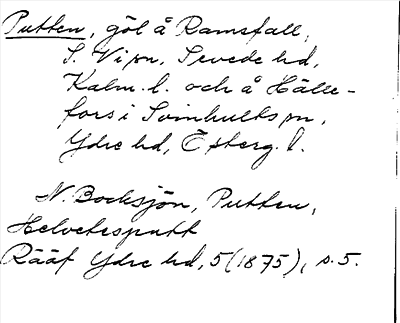 Putten, göl å Ramsfall,
S. Vi sn, Sevede hd,
Kalm. l. och å Hälle-
fors i Svinhults sn,
Ydre hd, Österg. l.
N. Bocksjön, Putten,
Helvetesputt
Rääf Ydre hd, 5 (1875), s. 5.